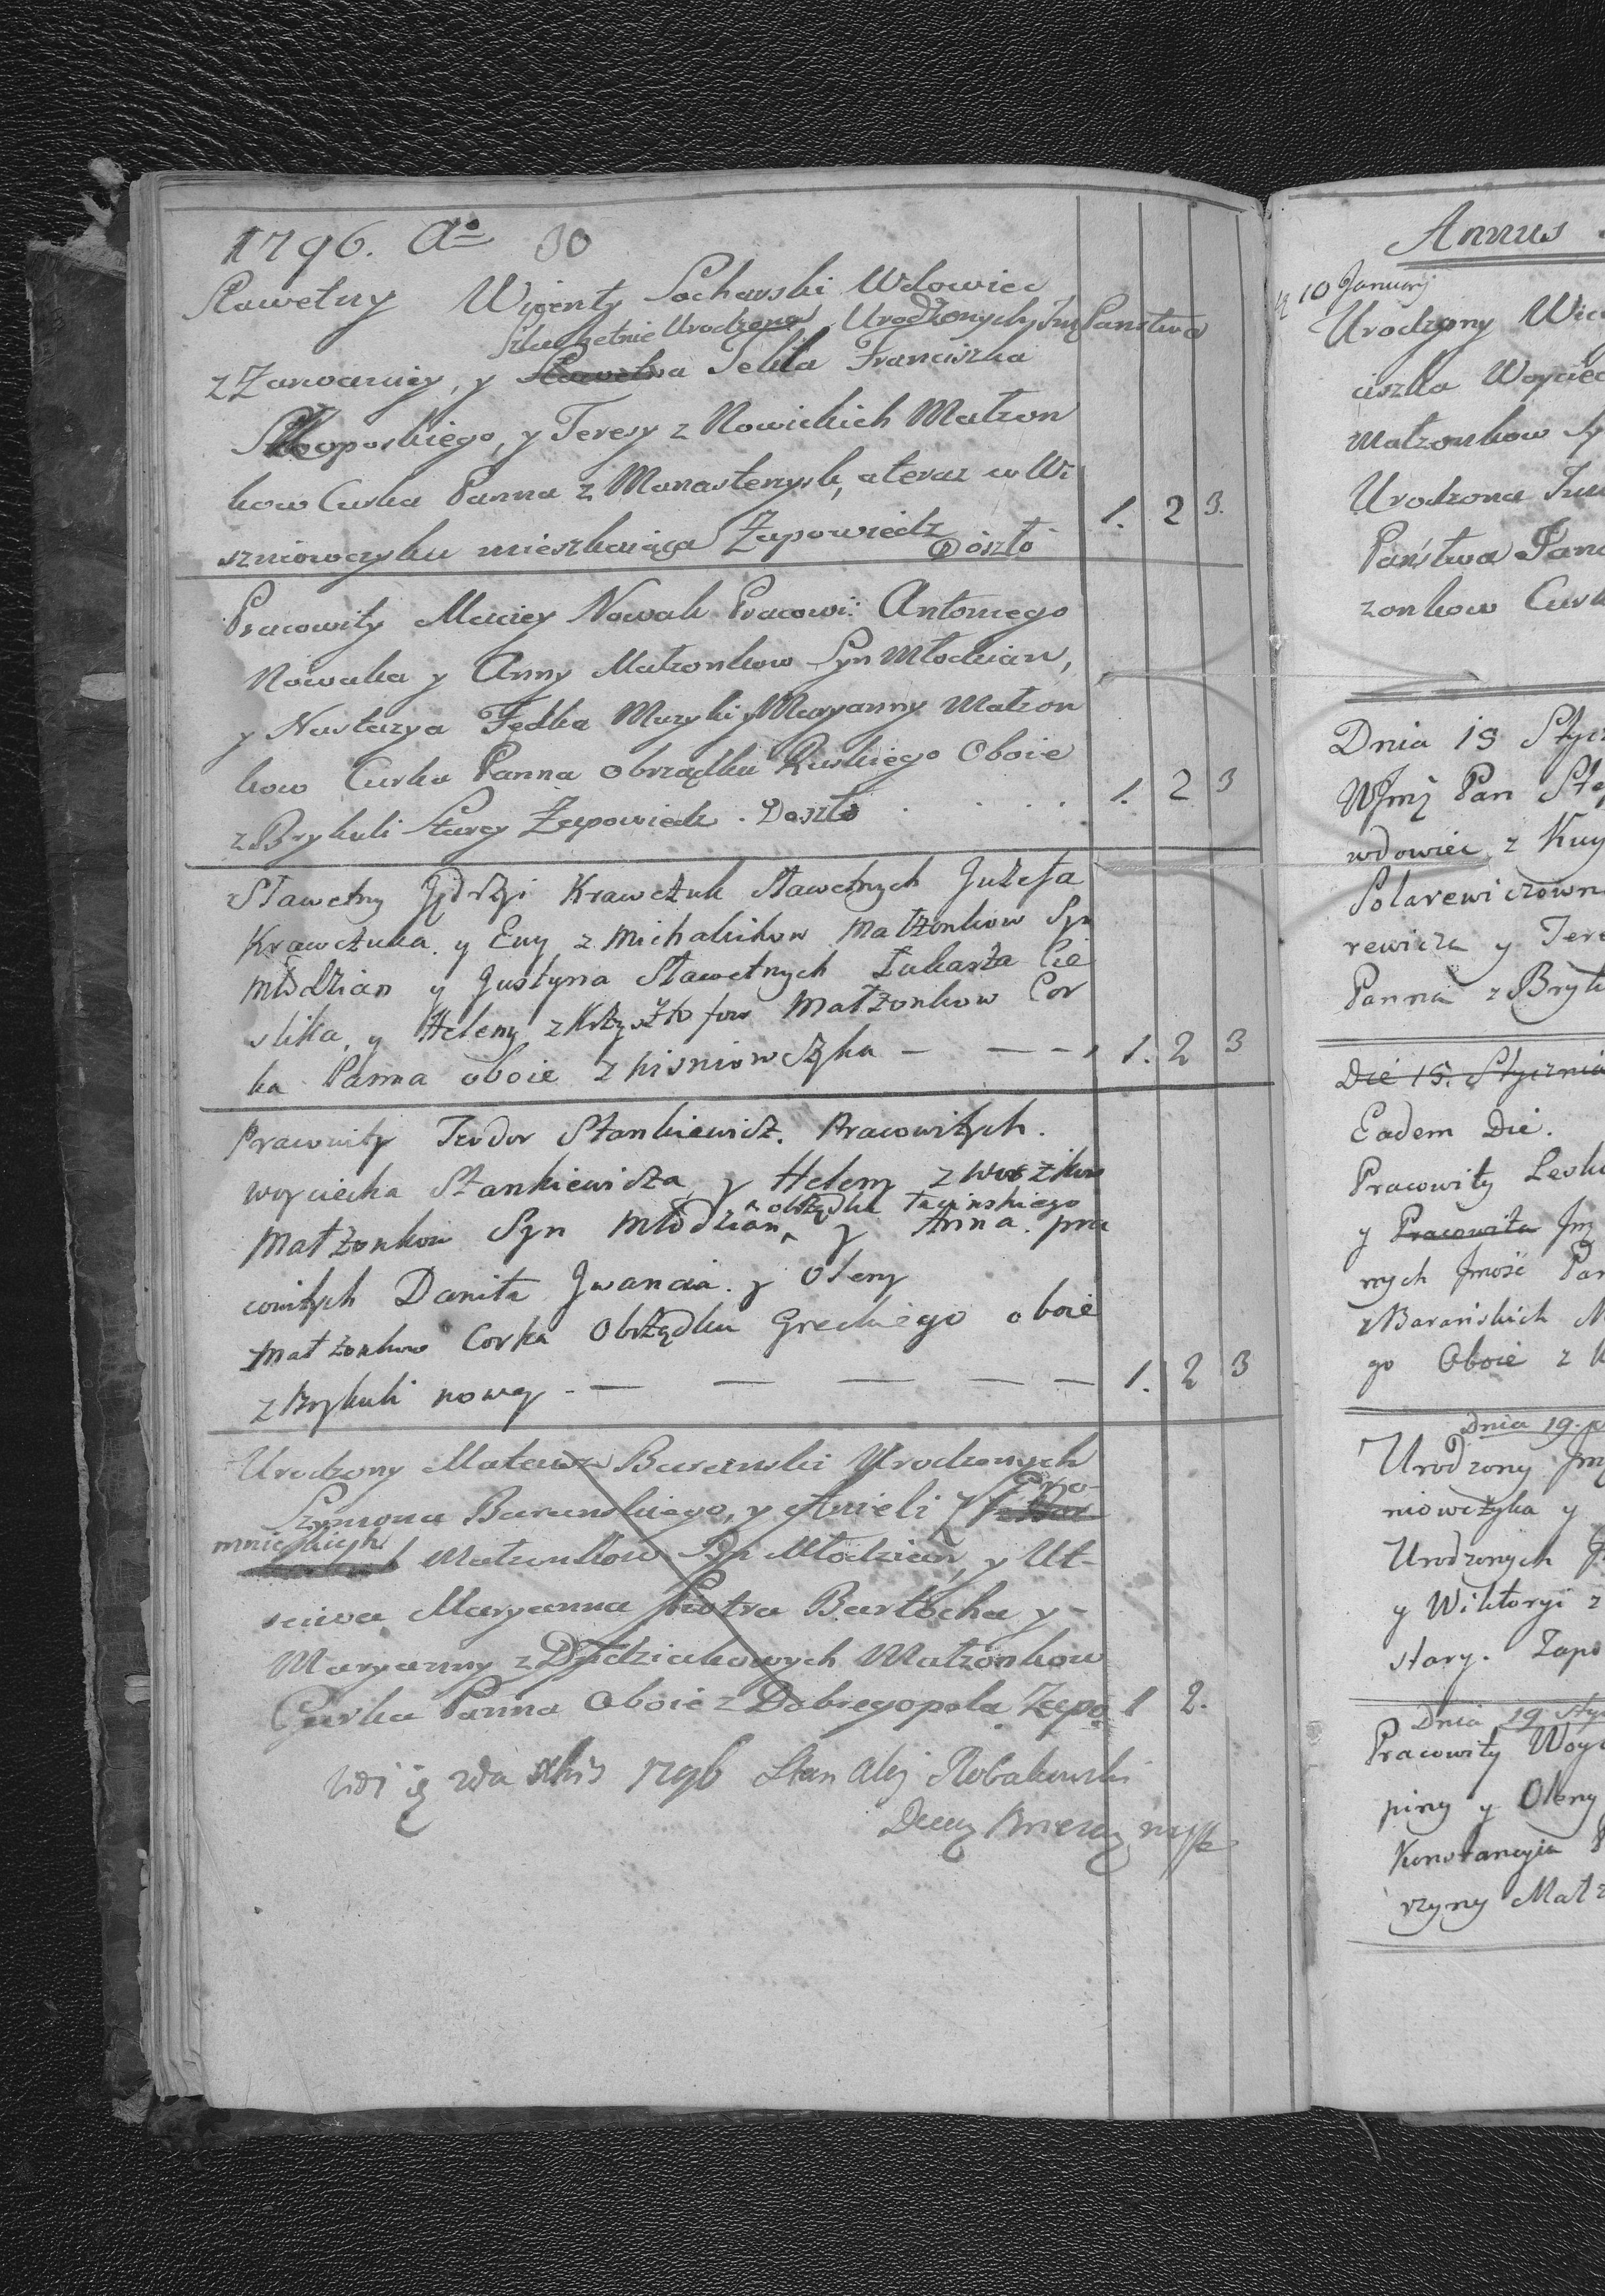 1796. Ao 30
Sławetny Wicenty Sochański Wdowiec
Szlachetnie Urodzona Urodzonych Jmć Państwa
z Zarwanicy, y Sławetna Tekla Franciszka
y Teresy z Nowickich Małzon
kow Curka Panna z Monasterzysk, a teraz w Wi
szniowczyku mieszkaiąca Zapowiedz
Doszło
1. 2 3.
Pracowity Maciey Nowak Pracowi: Antoniego
Nowaka y Anny Małzonkow Syn Młodzian,
y Nastazya Fedka Muzyki y Maryanny Małzon
kow Curka Panna obrządku Ruskiego Oboie
z Brykuli Starey Zapowiedz. Doszło . . . . 1. 2 3
Sławetny Jędrzi Krawczuk Sławetnych Juzefa
Krawczuka y Ewy z Michalikow Małżonkow Syn
Młodzian y Justyna Sławetnych Łukasza Cie
slika, y Heleny z Krzysztofow Małżonkow Cor
ka Panna oboie z Wisniowczyka — — — 1. 2 3
Pracowity Teodor Stankiewicz. Pracowitych.
Woyciecha Stankiewicza y Heleny z
obrządku Łacinskiego
Małżonkow Syn Młodzian y Anna pra
cowitych Daniła Jwancia y Oleny
Małżonkow Corka Obrządku Greckiego oboie
z Brykuli nowey — — — — — 1. 2 3
Urodzony Mateusz Baranski Urodzonych
Szymona Baranskiego, y Anieli z
mnickich Małzonkow Syn Młodzian, y Ut-
sciwa Maryanna Piotra Bartocha y -
Maryanny z Dydziakowych Małzonkow
Curka Panna Oboie z Dobregopola Zapo. 1 2.
1796 Stan Robakowski
Annus
10 Januarij
Urodzony Wic
ciszka Woyciec
Małzonkow Sy
Urodzona
Państwa Jana
zonkow Curk
Dnia 15 Stycz
WJmć Pan Ste
wdowiec z
Solarewiczown
rewicza y Tere
Panna z Bryk
Die 15. Stycznia
Eadem Die.
Pracowity Lesk
y Pracowita Jm
nych Jmość Pan
z Barańskich M
go Oboie z
Dnia 19. p
Urodzony Jm
niowczyka y
Urodzonych
y Wiktoryi z
stary. Zapo
Dnia 19 Sty
Pracowity Woyc
piny y Oleny
Konstancyia
rzyny Małz